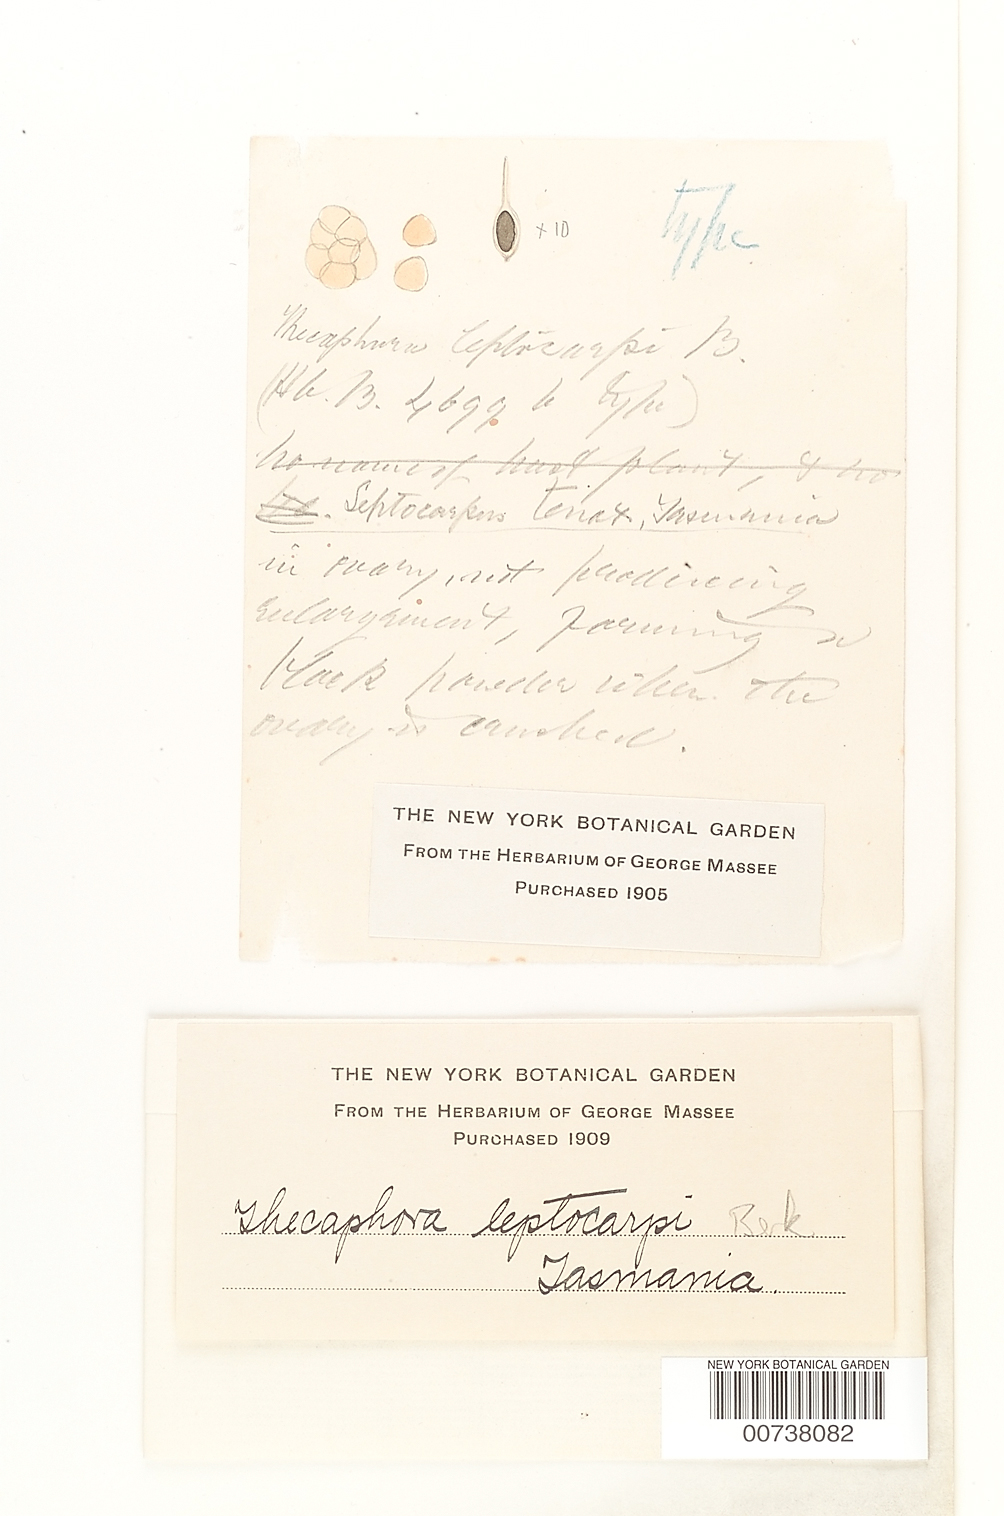 × 10
type
Thecaphora leptocarpi B.
(Hb. B. 4699 b type)
no name of host plant, & no
Leptocarpus tenax, Tasmania
in ovary, not producing
enlargement, forming a
black powder when the
ovary is crushed.
THE NEW YORK BOTANICAL GARDEN
FROM THE HERBARIUM OF GEORGE MASSEE
PURCHASED 1905
THE NEW YORK BOTANICAL GARDEN
FROM THE HERBARIUM OF GEORGE MASSEE
PURCHASED 1909
Thecaphora leptocarpi Berk.
Tasmania.
NEW YORK BOTANICAL GARDEN
00738082